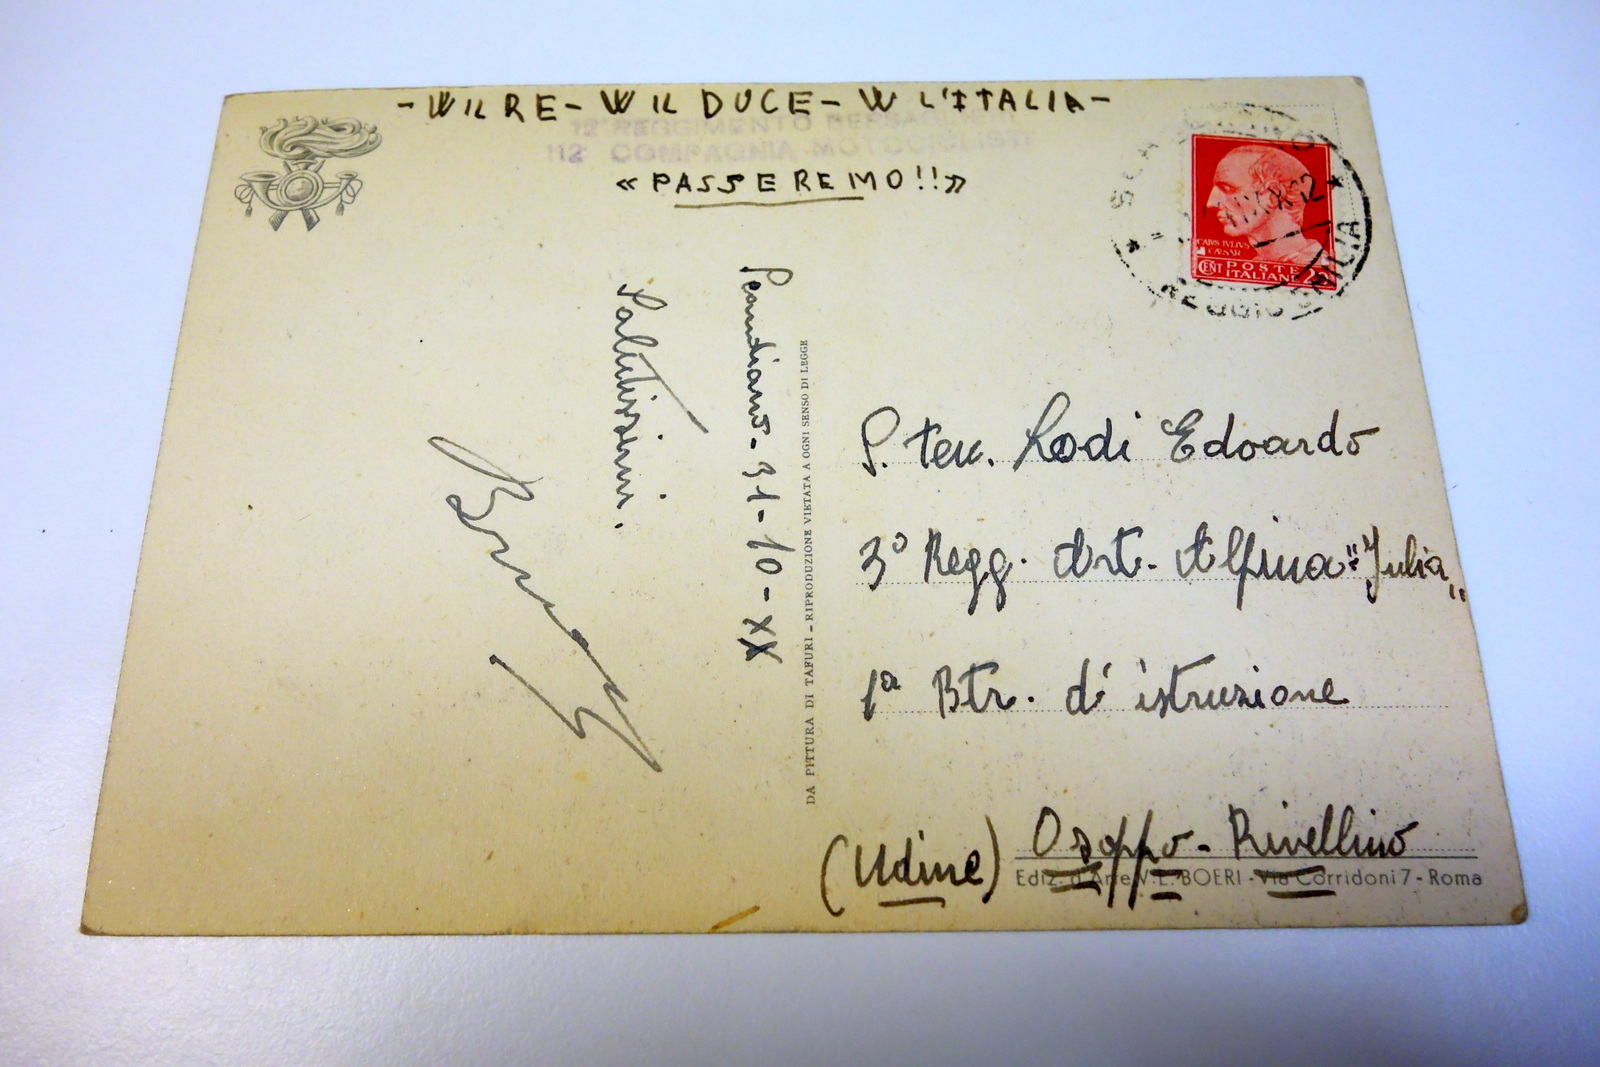 - W IL RE - W IL DUCE - W L'ITALIA -
12° REGGIMENTO BERSAGLIERI
112° COMPAGNIA MOTOCICLISTI
« PASSEREMO!! »
Scandiano - 31-10-XX
Salutissimi.
DA PITTURA DI TAFURI - RIPRODUZIONE VIETATA A OGNI SENSO DI LEGGE
REGGIO EMILIA
CAIVS IVLIVS
CAESAR
CENT POSTE ITALIANE 20
S. Ten. Lodi Edoardo
3° Regg. Art. Alpina "Julia"
1ª Btr. d'istruzione
(Udine) Osoppo - Rivellino
Ediz. d'Arte V.E. BOERI - Via Corridoni 7 - Roma